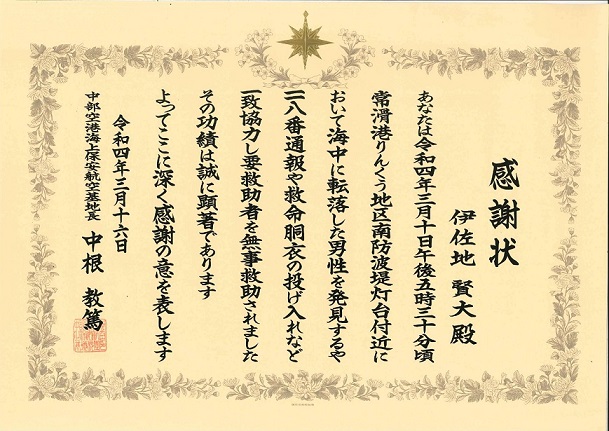 感謝状
伊佐地 賢大 殿
あなたは令和四年三月十日午後五時三十分頃
常滑港りんくう地区南防波堤灯台付近に
おいて海中に転落した男性を発見するや
一一八番通報や救命胴衣の投げ入れなど
一致協力し要救助者を無事救助されました
その功績は誠に顕著であります
よってここに深く感謝の意を表します
令和四年三月十六日
中部空港海上保安航空基地長 中根 教篤